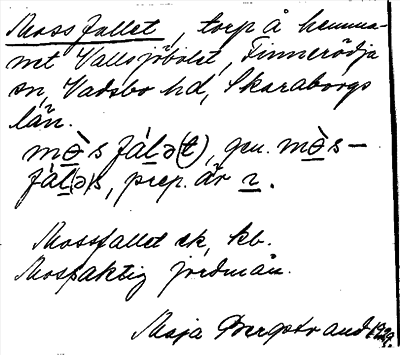 Mossfallet, torp å hemma-
net Vallsjöbolet, Finnerödja
sn, Vadsbo hd, Skaraborgs
län.
mə̀s fálə(t), gen. mə̀s-
fál(ə)s, prep. är ı.
Mossfallet ek, kb.
Mossaktig jordmån.
Maja Bergstrand 1929.